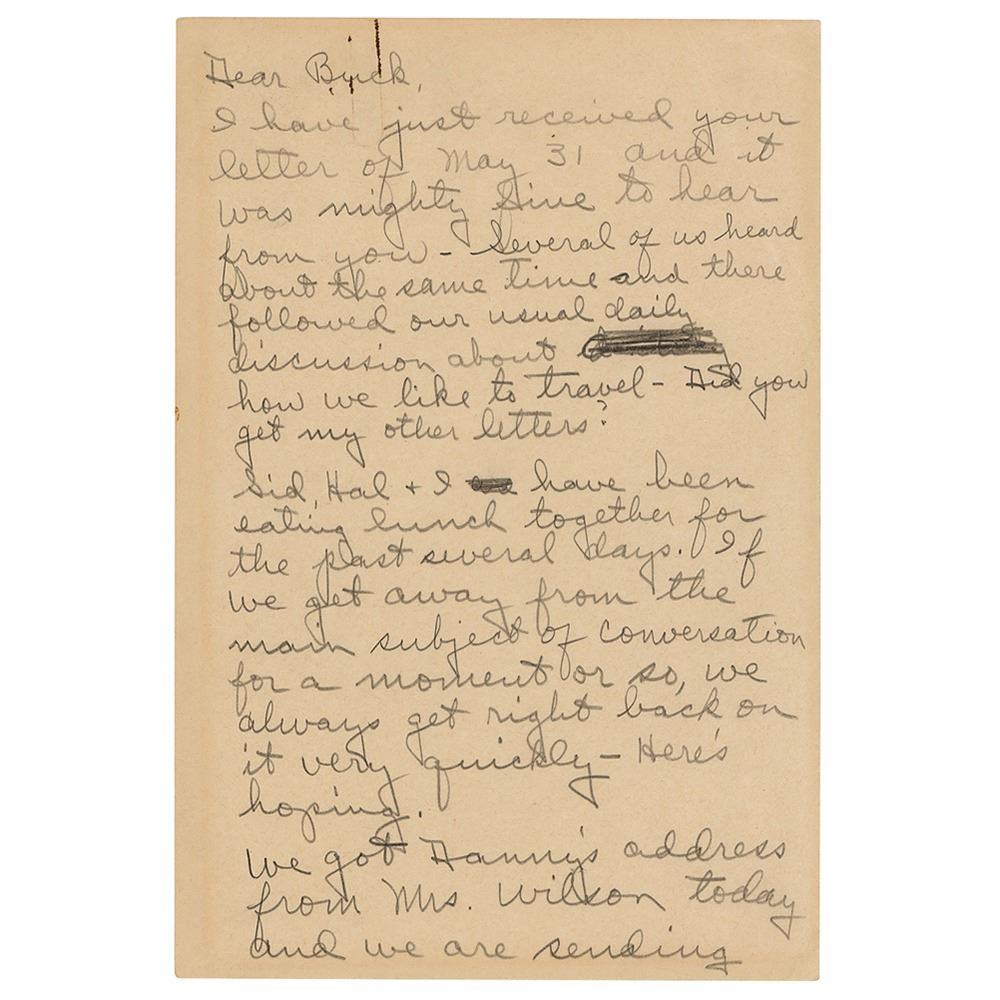 Dear Buck,
I have just received your
letter of May 31 and it
was mighty fine to hear
from you - Several of us heard
about the same time and there
followed our usual daily
discussion about
how we like to travel - Did you
get my other letters?
Sid, Hal + I have been
eating lunch together for
the past several days. If
we get away from the
main subject of conversation
for a moment or so, we
always get right back on
it very quickly - Here's
hoping.
We got Danny's address
from Mrs. Wilson today
and we are sending